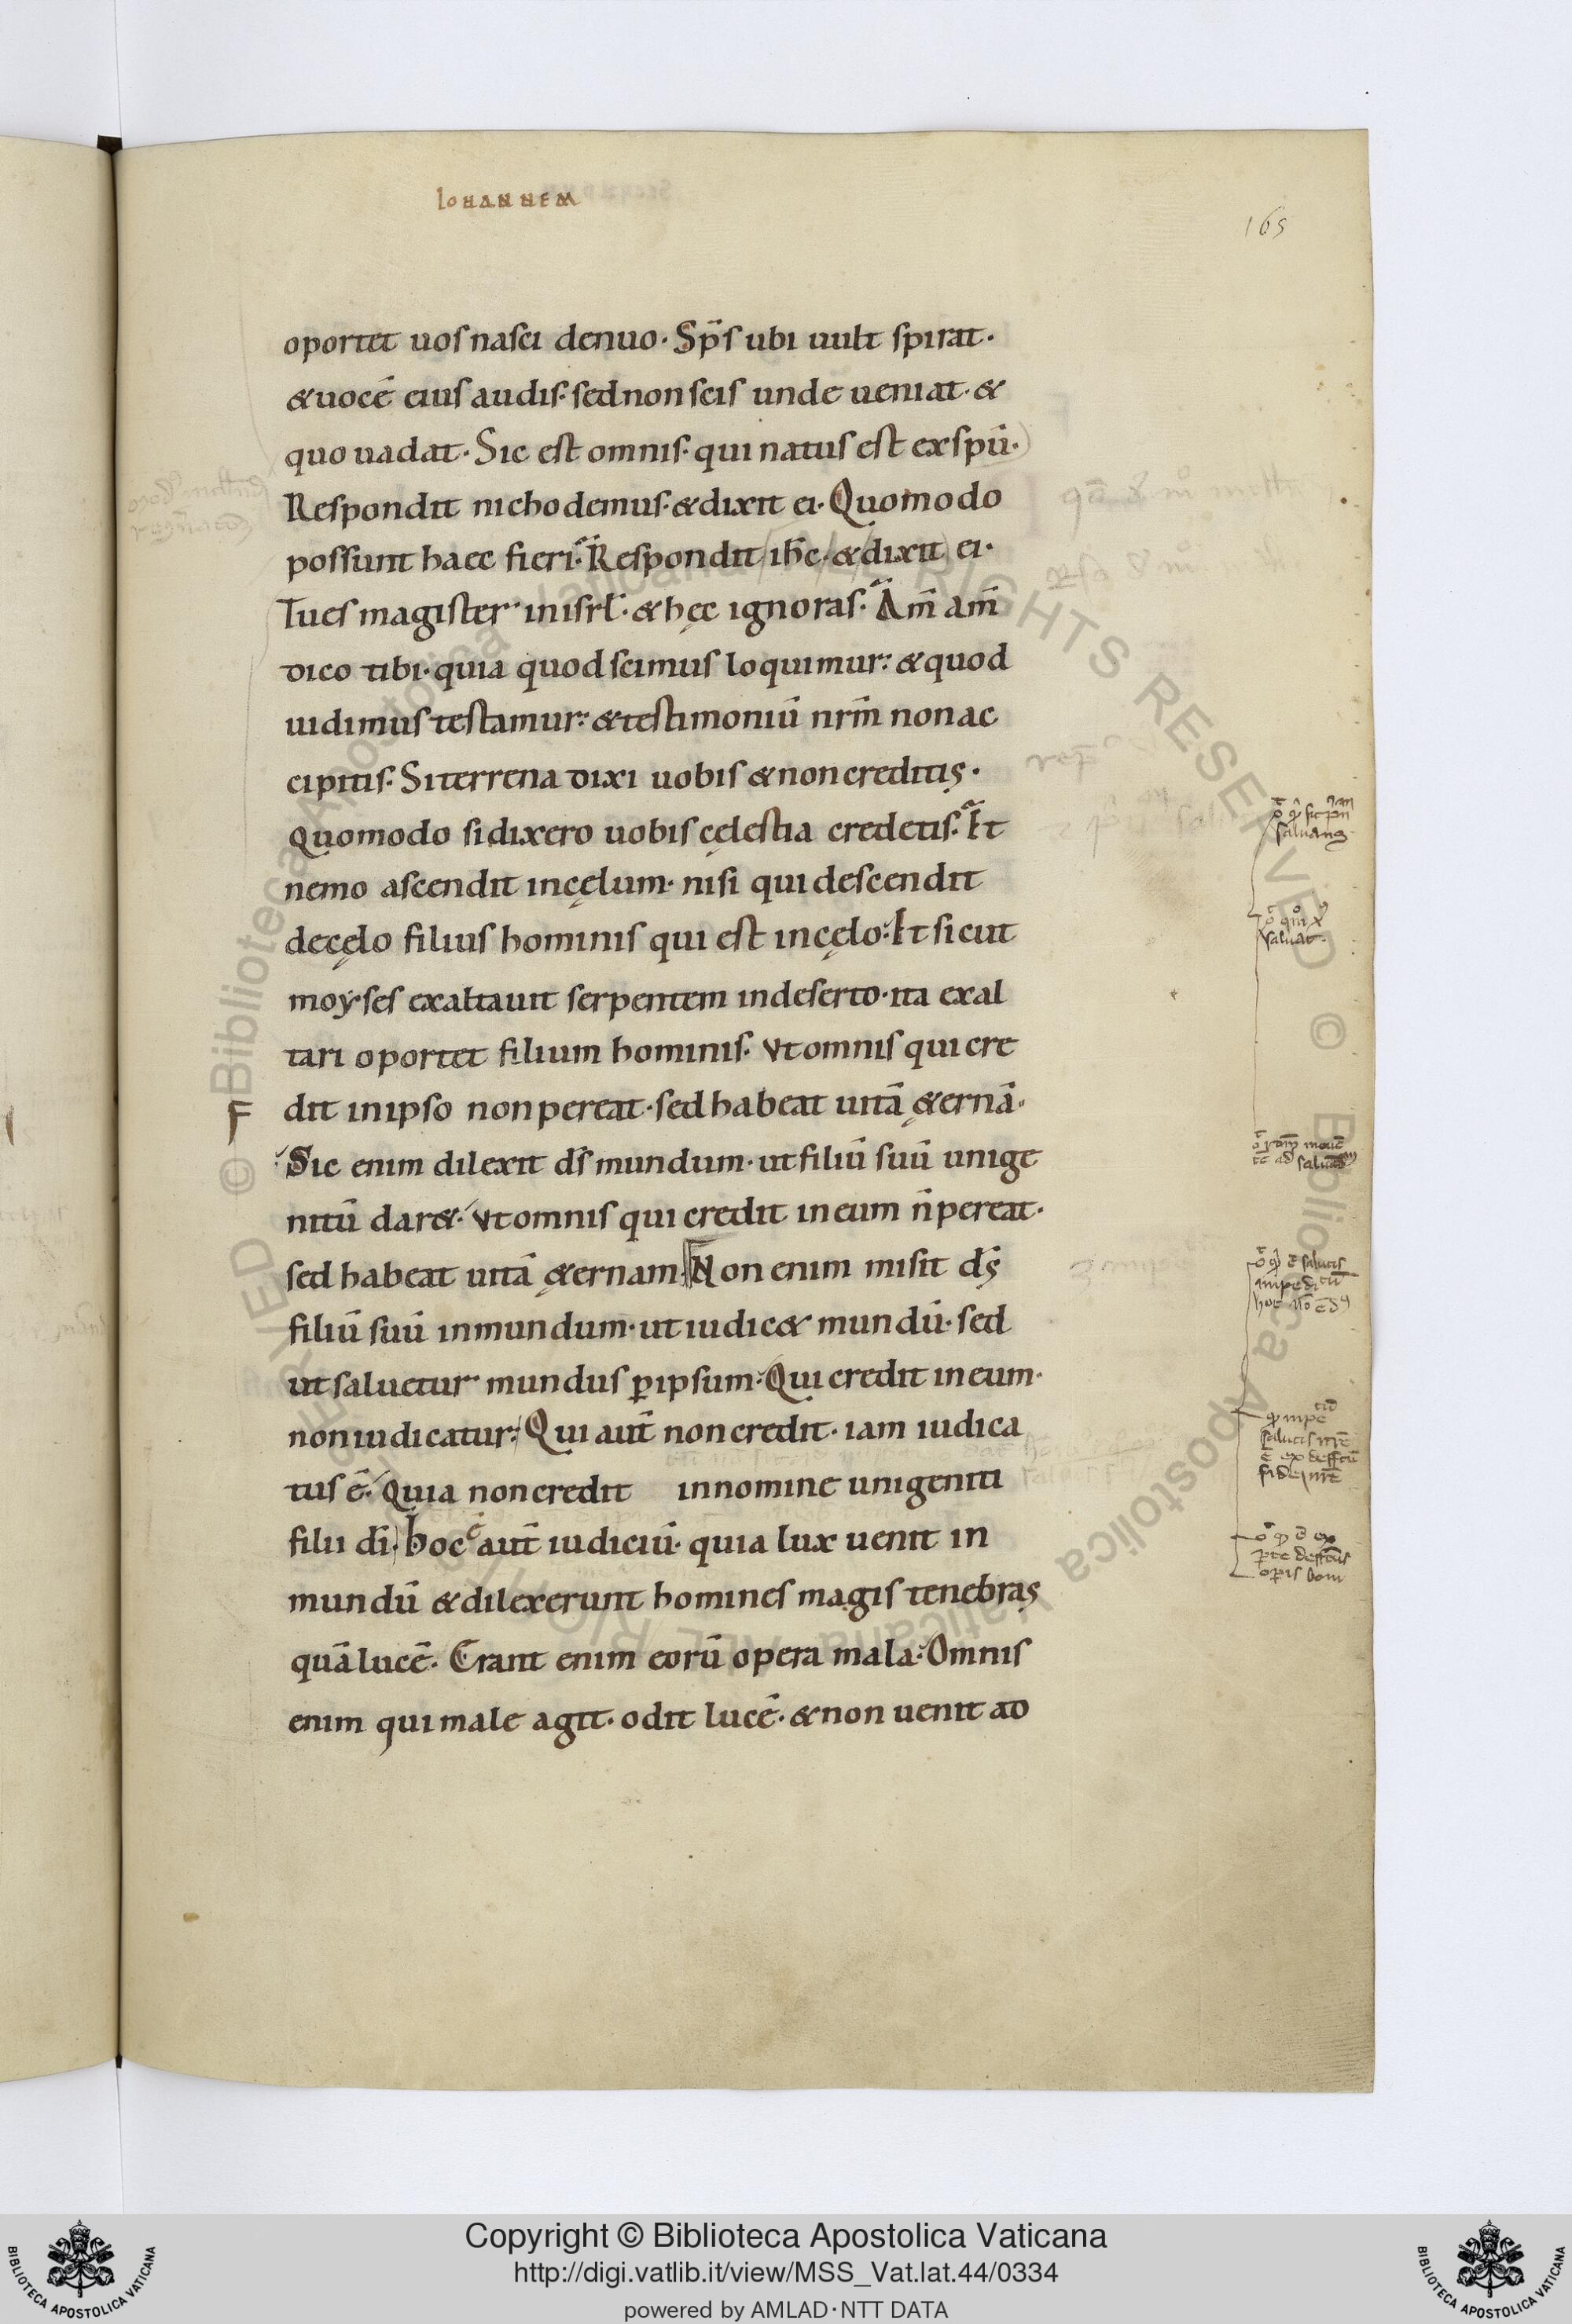 IOHANNEM
165
oportet uos nasci denuo· Sp̄s ubi uult spirat·
& uocē eius audis· sed non scis unde ueniat· &
quo uadat· Sic est omnis· qui natus est ex spū·
Respondit nichodemus· & dixit ei· Quomodo
possunt haec fieri· Respondit ih̄c· & dixit ei·
Tu es magister in isrl̄· & hęc ignoras· Am̄ am̄
dico tibi· quia quod scimus loquimur: & quod
uidimus testamur: & testimoniū nr̄m non ac
cipitis· Si terrena dixi uobis & non creditis·
Quomodo si dixero uobis cęlestia credetis· Et
nemo ascendit in cęlum· nisi qui descendit
de cęlo filius hominis qui est in cęlo: Et sicut
moyses exaltauit serpentem in deserto· ita exal
tari oportet filium hominis· Vt omnis qui cre
F
dit in ipso non pereat· sed habeat uitā ęternā·
Sic enim dilexit ds̄ mundum· ut filiū suū unige
nitū dar&· Vt omnis qui credit in eum n̄ pereat·
sed habeat uitā ęternam· Non enim misit ds̄
filiū suū in mundum· ut iudic& mundū· sed
ut saluetur mundus p̱ ipsum· Qui credit in eum·
non iudicatur: Qui aut̄ non credit· iam iudica
tus ē· Quia non credit in nomine unigeniti
filii dī· Hoc ē aut̄ iudiciū· quia lux uenit in
mundū & dilexerunt homines magis tenebras
quā lucē· Erant enim eorū opera mala· Omnis
enim qui male agit· odit lucē· & non uenit ad
Copyright © Biblioteca Apostolica Vaticana
http://digi.vatlib.it/view/MSS_Vat.lat.44/0334
powered by AMLAD·NTT DATA
BIBLIOTECA APOSTOLICA VATICANA
BIBLIOTECA APOSTOLICA VATICANA